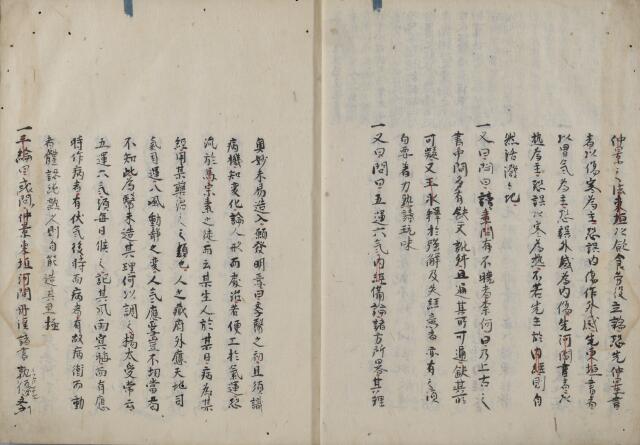 仲景之法東垣以飲食勞役立論恐先仲景書
者以傷寒為主恐誤内傷作外感先東垣書者
以胃氣為主恐誤外感為内傷先河間書者
熱為主恐誤以寒為熱不若先主於内經則自
然活潑々地
一又曰問曰讀素問有不曉者奈何曰乃上古之
書中間多有缺文訛舛且通其所可通缺其所
可疑又王氷釋於強解及失經意者亦有之須
自要着力熟讀玩味
一又曰問曰五運六氣内經備論諸方所畧其理
奧妙未易造入願發明焉曰學醫之初且須識
病機知變化論人形而處治若便工於氣運恐
流於馬宗素之徒而云某生人於某日病為某
經用某藥治之之類也人之藏府外應天地司
氣司運八風動靜之變人氣應焉豈不切當苟
不知此為醫未造其理何以調之揚太受常云
五運六氣須每日候之記其風雨寒晦而有應
時作病者有伏氣後時而病者有故病衝而動
者體認純熟久則自能造其至極
一平論曰或問仲景東垣河間丹溪諸書孰優孝